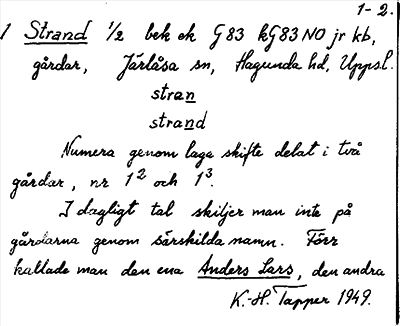 1-2.
1 Strand 1/2 bek ek G 83 kG 83 NO jr kb,
gårdar, Järlåsa sn, Hagunda hd, Uppsl.
stran
strand
Numera genom laga skifte delat i två
gårdar, nr 1² och 1³.
I dagligt tal skiljer man inte på
gårdarna genom särskilda namn. Förr
kallade man den ena Anders Lars, den andra
K.-H. Tapper 1949.